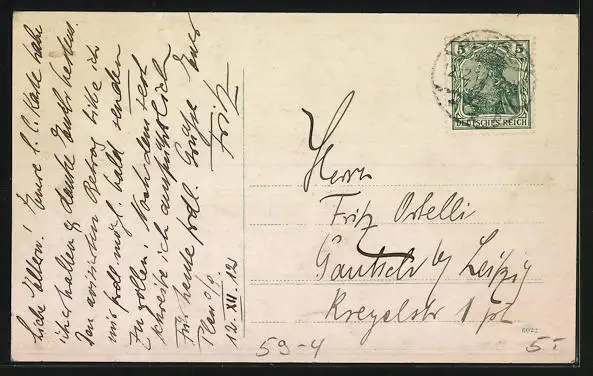 Liebe Eltern! Eure l. Karte habe
ich erhalten & danke Euch bestens.
Den Betrag bitte ich
mir woll mögl. bald senden
zu wollen! Nach dem Fest
schreibe ich ausführlich
Für heute frdl. Grüße Euer
Fritz
Plen o/o
12. XII. 12
5 5
DEUTSCHES REICH
Herrn
Fritz Ortelli
Gautzsch b/ Leipzig
Kregelstr 1 pt
6022
59-4
5.-